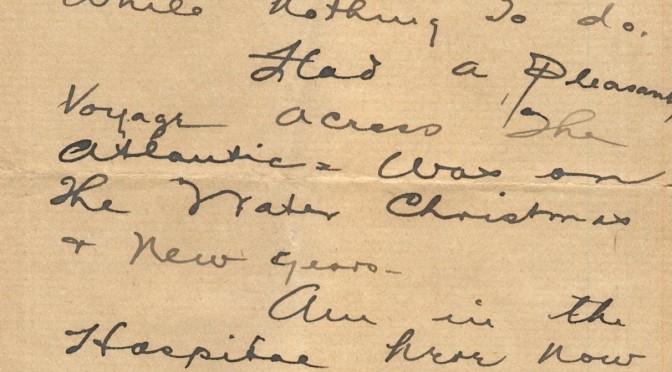 while nothing to do.
Had a Pleasant
Voyage across The
Atlantic = Was on
The Water Christmas
& New Years -
Am in the
Hospital hear now